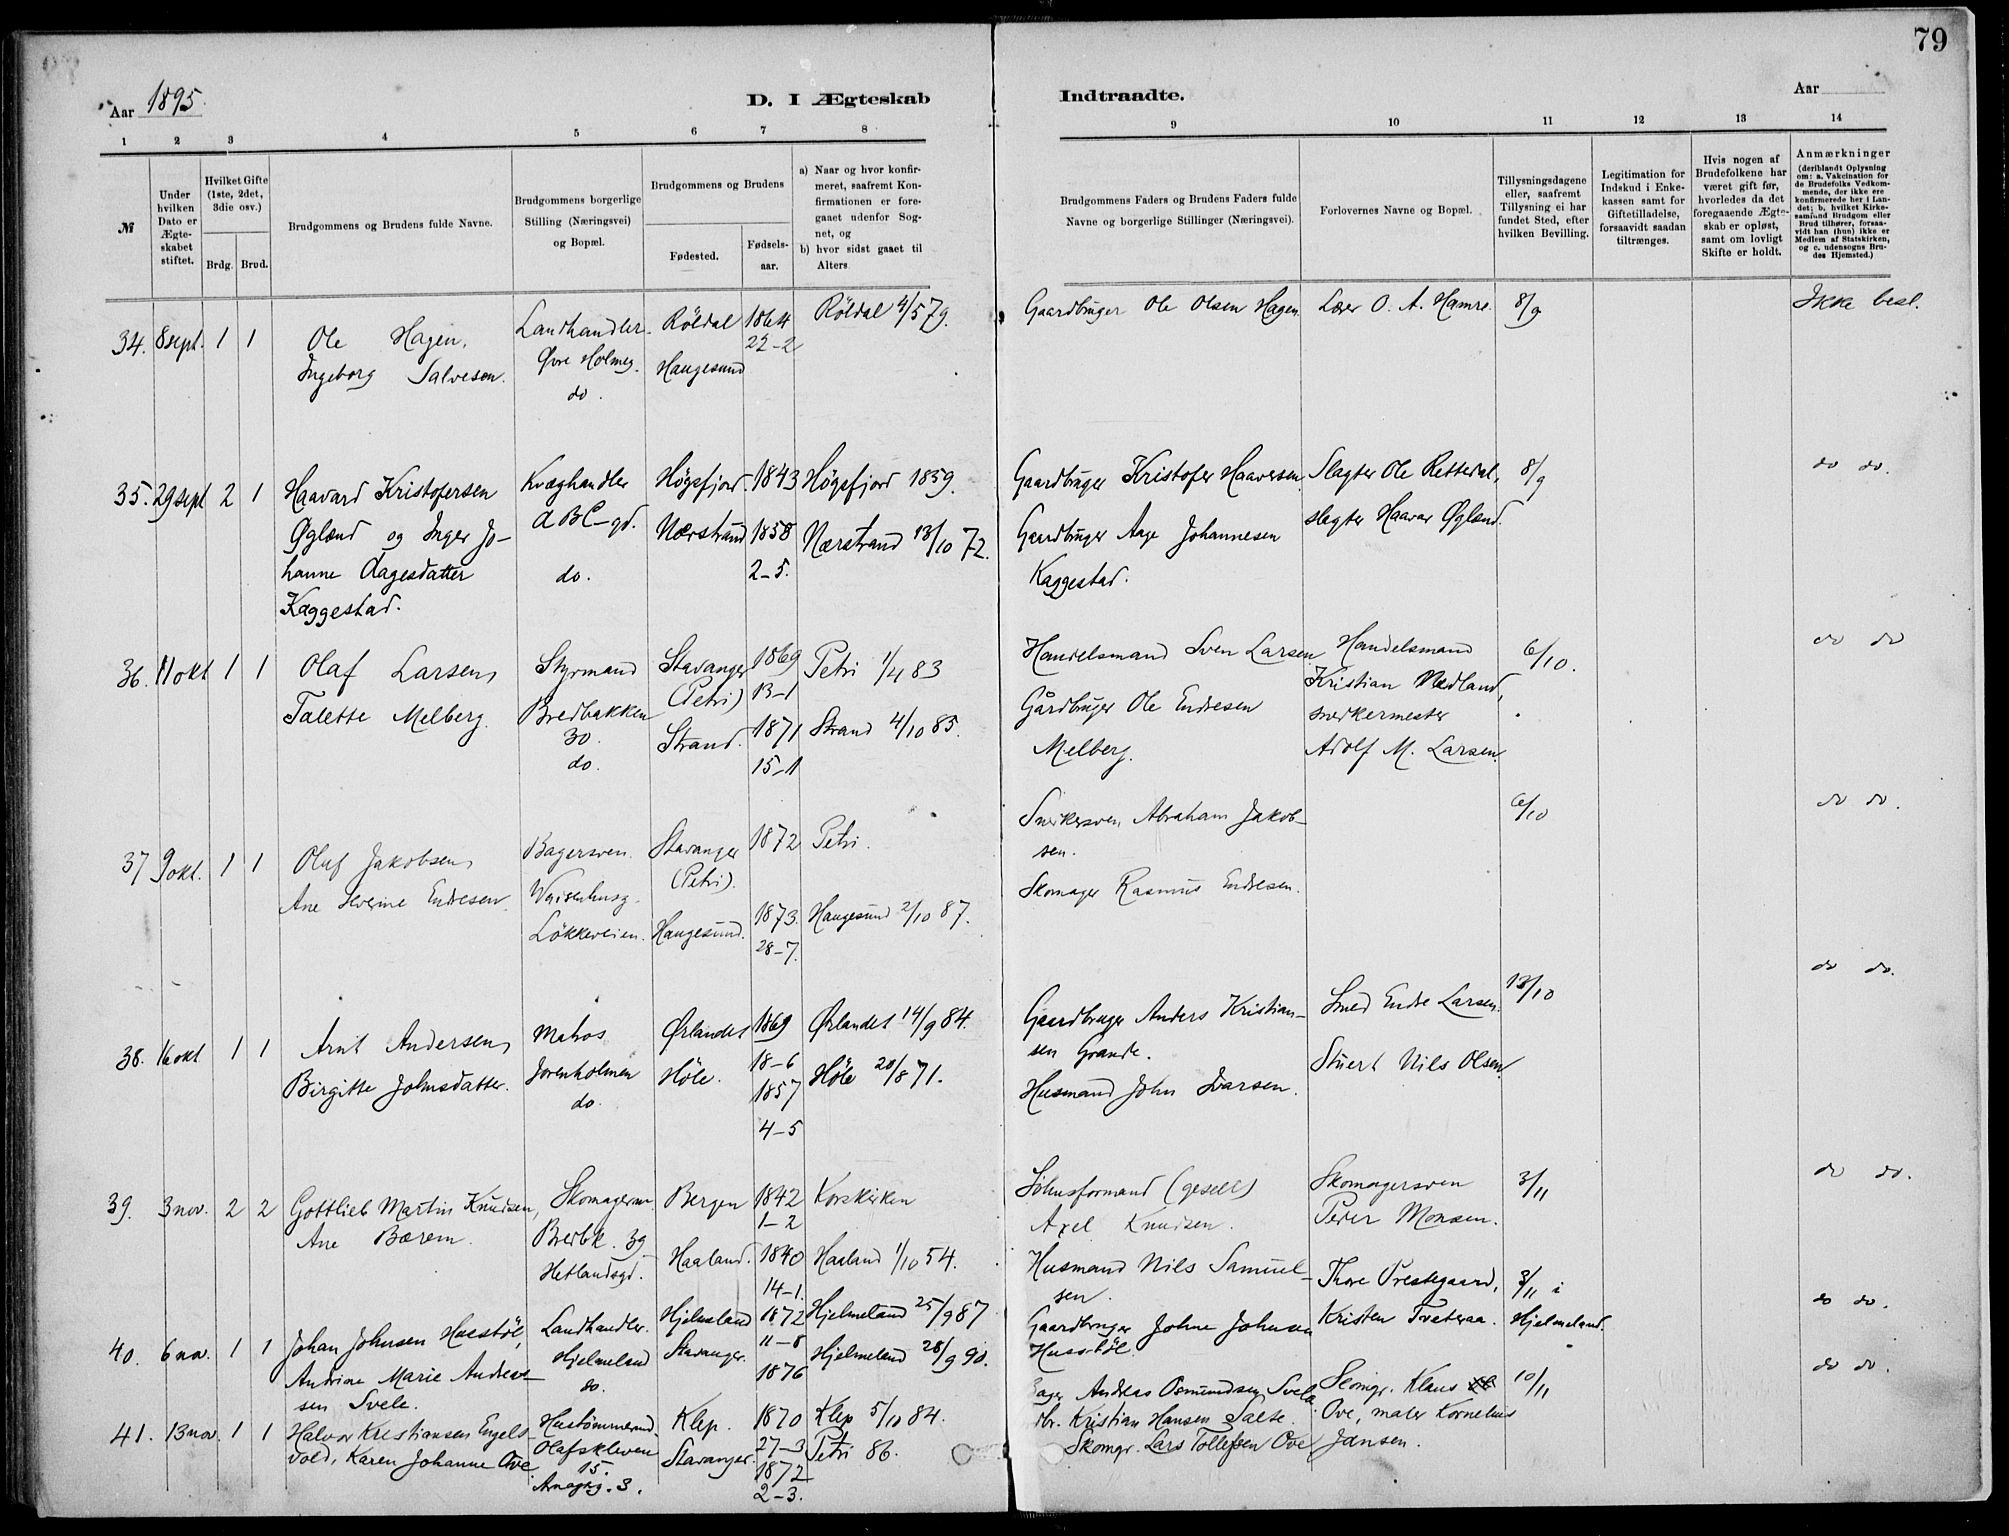 79
Aar 1895.
D. I Ægteskab
Indtraadte.
Aar
1 2 3 4 5 6 7 8
9 10 11 12 13 14
№
Under hvilken Dato er Ægteskabet stiftet.
Hvilket Gifte (1ste, 2det, 3die osv.)
Brdg. Brud.
Brudgommens og Brudens fulde Navne.
Brudgommens borgerlige Stilling (Næringsvei) og Bopæl.
Brudgommens og Brudens
Fødested.
Fødselsaar.
a) Naar og hvor konfirmeret, saafremt Konfirmationen er foregaaet udenfor Sognet, og
b) hvor sidst gaaet til Alters.
Brudgommens Faders og Brudens Faders fulde Navne og borgerlige Stillinger (Næringsvei).
Forlovernes Navne og Bopæl.
Tillysningsdagene eller, saafremt Tillysning ei har fundet Sted, efter hvilken Bevilling.
Legitimation for Indskud i Enkekassen samt for Giftetilladelse, forsaavidt saadan tiltrænges.
Hvis nogen af Brudefolkene har været gift før, hvorledes da det foregaaende Ægteskab er opløst, samt om lovligt Skifte er holdt.
Anmærkninger
(deriblandt Oplysning om: a. Vakcination for de Brudefolks Vedkommende, der ikke ere konfirmerede her i Landet; b. hvilket Kirkesamfund Brudgom eller Brud tilhører, forsaavidt han (hun) ikke er Medlem af Statskirken, og c. udensogns Brudes Hjemsted.)
34. 8 sept. 1 1
Ole Hagen,
Ingeborg Salvesen.
Landhandler.
Øvre Holmeg.
do.
Röldal 1864
22-2
Haugesund
Röldal 4/5 79.
Gaardbruger Ole Olsen Hagen.
Lærer O. A. Hamre.
8/9
Ikke besl.
35. 29 sept 2 1
Haavard Kristofersen
Øglænd og Inger Jo-
hanne Aagesdatter
Kaggestad.
Kvæghandler
ABC-gd.
do.
Högsfjord. 1843
Nærstrand 1858
2-5.
Högsfjord 1859.
Nærstrand 13/10 72.
Gaardbruger Kristofer Haaversen
Gaardbruger Aage Johannesen
Kaggestad.
Slagter Ole Rettedal,
slagter Haavar Øglænd.
8/9
do do.
36. 11 okt 1 1
Olaf Larsen,
Talette Melberg.
Styrmand
Bredbakken
30.
do.
Stavanger
(Petri)
Strand.
1869
13-1
1871
15-1
Petri 1/4 83
Strand 4/10 85.
Handelsmand Sven Larsen
Gårdbruger Ole Endresen
Melberg.
Handelsmand
Kristian Nedland,
snekermester
Adolf M. Larsen
6/10.
do do
37 9 okt. 1 1
Oluf Jakobsen,
Ane Severine Endresen.
Bagersven.
Waisenhusg.
Lökkeveien.
Stavanger
(Petri).
Haugesund.
1872
1873.
28-7.
Petri.
Haugesund 2/10 87.
Snekersven Abraham Jakob-
sen.
Skomager Rasmus Endresen.
6/10
do do.
38. 16 okt 1 1
Arnt Andersen,
Birgitte Johnsdatter.
Matros
Jorenholmen
do.
Ørlandet
Höle.
1869
18-6
1857
4-5
Ørlandet 14/9 84.
Höle 20/8 71.
Gaardbruger Anders Kristian-
sen Grande.
Husmand John Ivarsen.
Smed Endre Larsen.
Stuert Nils Olsen
13/10
do do.
39. 3 nov. 2 2
Gottlieb Martin Knudsen,
Ane Bærem.
Bredbk. 39
Hetlandsgd.
Bergen
Haaland.
1842
1-2
1840
14-1.
Korskirken
Haaland 1/10 54.
Axel Knudsen.
Husmand Nils Samuel-
sen.
Skomagersven
Peder Monsen.
3/11
do do.
40. 6 nov. 1 1
Johan Johnsen Husstöl,
Antrine Marie Andreas-
sen Svele.
Landhandler.
Hjelmeland
do.
Hjelmeland
Stavanger.
1872
11-8
1876
Hjelmeland 25/9 87
Hjelmeland 28/9 90.
Gaardbruger Johne Johnsen
Husstöl.
Andreas Osmundsen Svele
Thore Prestegaard,
Kristen Tveteraa.
3/11 i
Hjelmeland.
do do.
41. 13 nov. 1 1
Halvor Kristiansen Engels-
vold, Karen Johanne Ove
Hustömmermd.
Olafskleven
15.
Klep.
Stavanger.
1870
27-3
1872
2-3.
Klep 5/10 84.
Petri 86.
Kristian Hansen Salte.
Skomgr. Lars Tollefsen Ove
Skomgr. Klaus
Ove, maler Kornelius
Jansen.
10/11
do do.